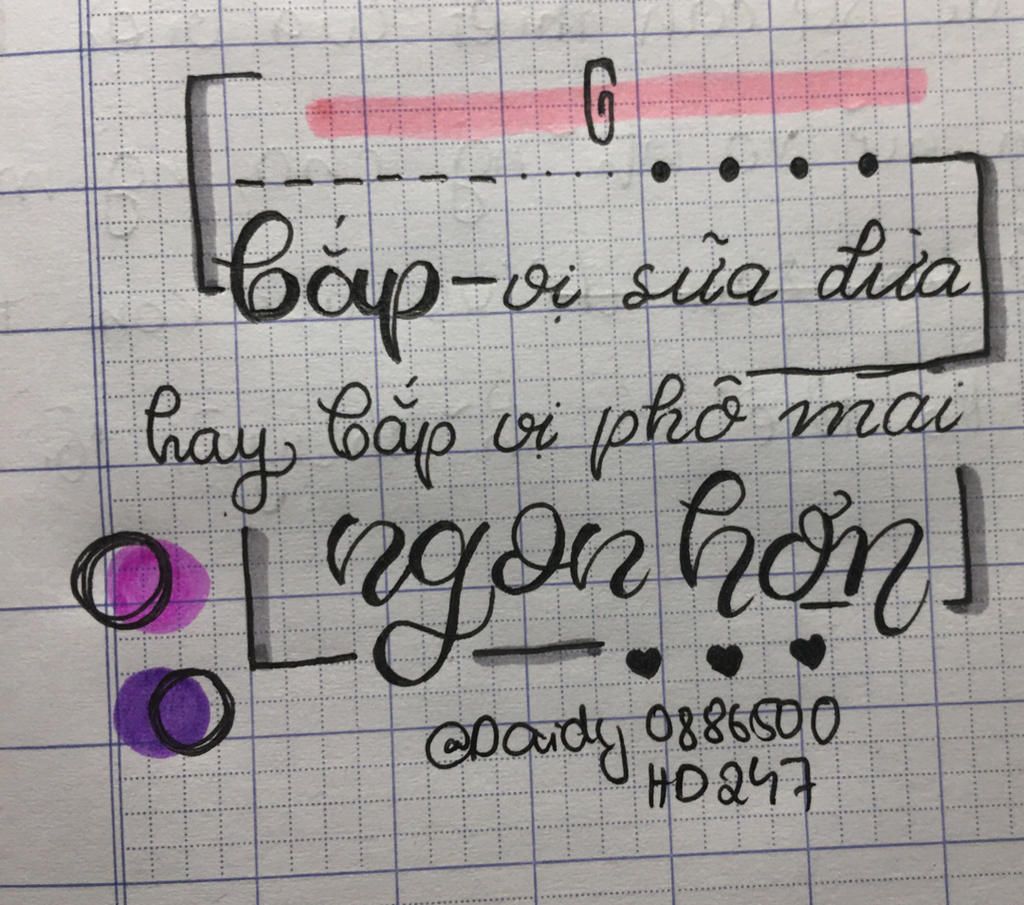 G
bắp - vị sữa dừa
hay bắp vị phô mai
ngon hơn
@Daidy 0886500
HD247